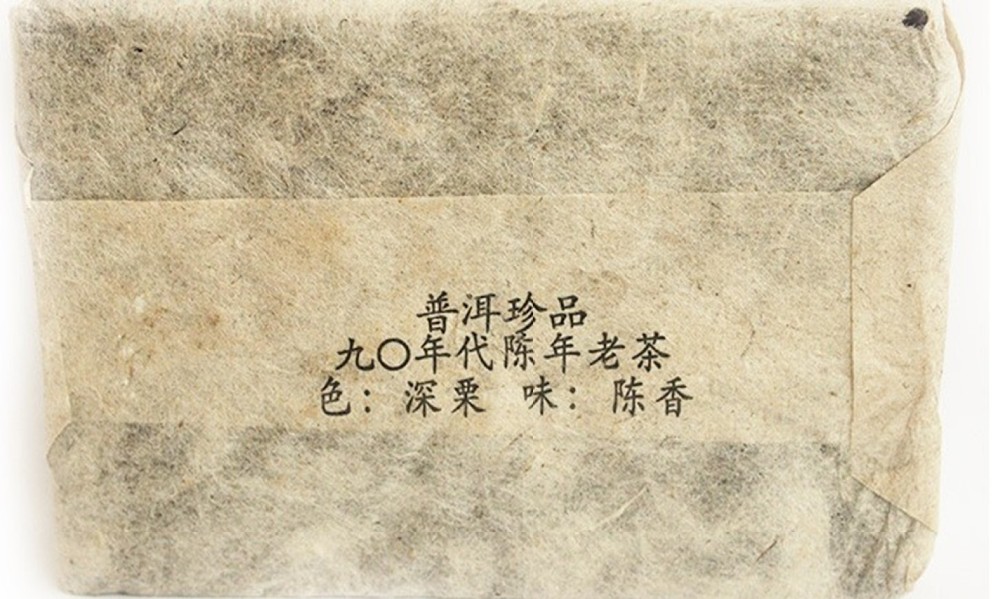 普洱珍品
九〇年代陈年老茶
色：深栗　味：陈香